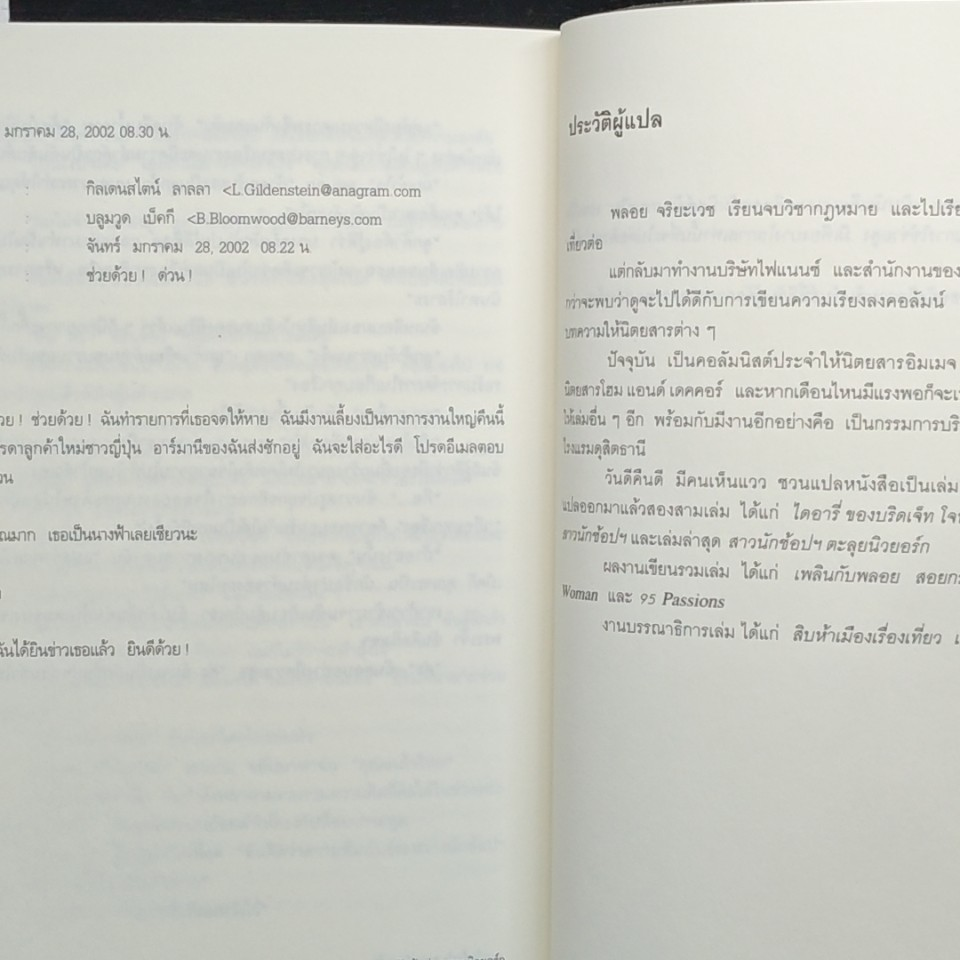 มกราคม 28, 2002 08.30 น.
: กิลเดนสไตน์ ลาลลา <L.Gildenstein@anagram.com
: บลูมวูด เบ็คกี <B.Bloomwood@barneys.com
: จันทร์ มกราคม 28, 2002 08.22 น.
: ช่วยด้วย! ด่วน!
วย! ช่วยด้วย! ฉันทำรายการที่เธอจดให้หาย ฉันมีงานเลี้ยงเป็นทางการงานใหญ่คืนนี้
รดาลูกค้าใหม่ชาวญี่ปุ่น อาร์มานีของฉันส่งซักอยู่ ฉันจะใส่อะไรดี โปรดอีเมลตอบ
วน
ณมาก เธอเป็นนางฟ้าเลยเชียวนะ
ันได้ยินข่าวเธอแล้ว ยินดีด้วย!
ประวัติผู้แปล
พลอย จริยะเวช เรียนจบวิชากฎหมาย และไปเรีย
เที่ยวต่อ
แต่กลับมาทำงานบริษัทไฟแนนซ์ และสำนักงานของ
กว่าจะพบว่าดูจะไปได้ดีกับการเขียนความเรียงลงคอลัมน์
บทความให้นิตยสารต่าง ๆ
ปัจจุบัน เป็นคอลัมนิสต์ประจำให้นิตยสารอิมเมจ
นิตยสารโฮม แอนด์ เดคคอร์ และหากเดือนไหนมีแรงพอก็จะเ
ให้เล่มอื่น ๆ อีก พร้อมกับมีงานอีกอย่างคือ เป็นกรรมการบริ
โรงแรมดุสิตธานี
วันดีคืนดี มีคนเห็นแวว ชวนแปลหนังสือเป็นเล่ม
แปลออกมาแล้วสองสามเล่ม ได้แก่ ไดอารี่ ของบริดเจ็ท โจ
สาวนักช้อปฯ และเล่มล่าสุด สาวนักช้อปฯ ตะลุยนิวยอร์ก
ผลงานเขียนรวมเล่ม ได้แก่ เพลินกับพลอย สอยก
Woman และ 95 Passions
งานบรรณาธิการเล่ม ได้แก่ สิบห้าเมืองเรื่องเที่ยว